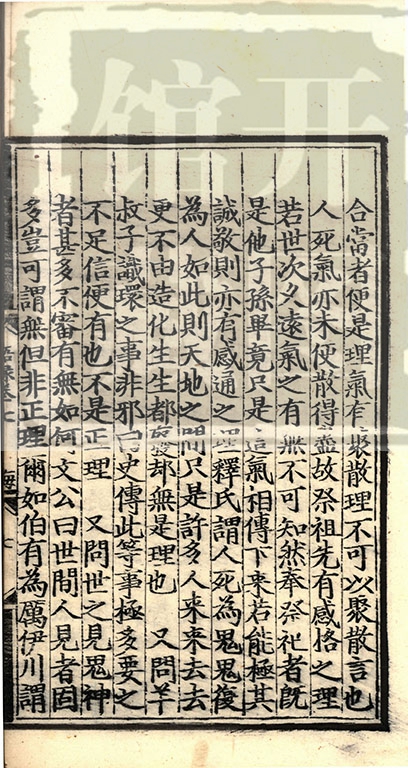 合當者便是理氣有聚散理不可以聚散言也
人死氣亦未便散得盡故祭祖先有感格之理
若世次久遠氣之有無不可知然奉祭祀者既
是他子孫畢竟只是這氣相傳下來若能極其
誠敬則亦有感通之理釋氏謂人死為鬼鬼復
為人如此則天地之間只是許多人來來去去
更不由造化生生都廢却無是理也 又問羊
叔子識環之事非邪曰史傳此等事極多要之
不足信便有也不是正理 又問世之見鬼神
者甚多不審有無如何文公曰世間人見者固
多豈可謂無但非正理爾如伯有為厲伊川謂
七
馆开